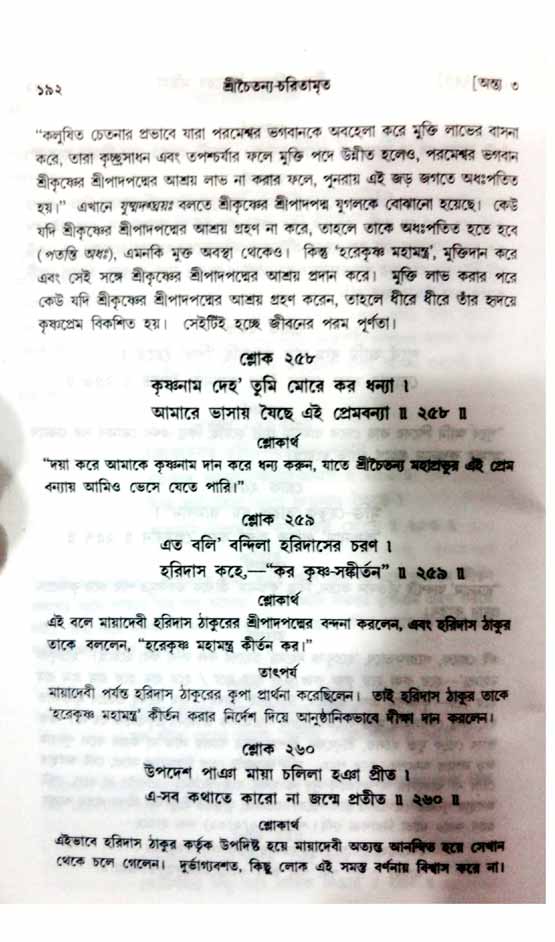 ১৯২ শ্রীচৈতন্য-চরিতামৃত [অন্ত্য ৩
“কলুষিত চেতনার প্রভাবে যারা পরমেশ্বর ভগবানকে অবহেলা করে মুক্তি লাভের বাসনা
করে, তারা কৃচ্ছ্রসাধন এবং তপশ্চর্যার ফলে মুক্তি পদে উন্নীত হলেও, পরমেশ্বর ভগবান
শ্রীকৃষ্ণের শ্রীপাদপদ্মের আশ্রয় লাভ না করার ফলে, পুনরায় এই জড় জগতে অধঃপতিত
হয়।” এখানে যুষ্মদঙ্ঘ্রয়ঃ বলতে শ্রীকৃষ্ণের শ্রীপাদপদ্ম যুগলকে বোঝানো হয়েছে। কেউ
যদি শ্রীকৃষ্ণের শ্রীপাদপদ্মের আশ্রয় গ্রহণ না করে, তাহলে তাকে অধঃপতিত হতে হবে
(পতন্তি অধঃ), এমনকি মুক্ত অবস্থা থেকেও। কিন্তু ‘হরেকৃষ্ণ মহামন্ত্র’, মুক্তিদান করে
এবং সেই সঙ্গে শ্রীকৃষ্ণের শ্রীপাদপদ্মের আশ্রয় প্রদান করে। মুক্তি লাভ করার পরে
কেউ যদি শ্রীকৃষ্ণের শ্রীপাদপদ্মের আশ্রয় গ্রহণ করেন, তাহলে ধীরে ধীরে তাঁর হৃদয়ে
কৃষ্ণপ্রেম বিকশিত হয়। সেইটিই হচ্ছে জীবনের পরম পূর্ণতা।
শ্লোক ২৫৮
কৃষ্ণনাম দেহ’ তুমি মোরে কর ধন্যা ।
আমারে ভাসায় যৈছে এই প্রেমবন্যা ॥ ২৫৮ ॥
শ্লোকার্থ
“দয়া করে আমাকে কৃষ্ণনাম দান করে ধন্য করুন, যাতে শ্রীচৈতন্য মহাপ্রভুর এই প্রেম
বন্যায় আমিও ভেসে যেতে পারি।”
শ্লোক ২৫৯
এত বলি’ বন্দিলা হরিদাসের চরণ ।
হরিদাস কহে,—“কর কৃষ্ণ-সঙ্কীর্তন” ॥ ২৫৯ ॥
শ্লোকার্থ
এই বলে মায়াদেবী হরিদাস ঠাকুরের শ্রীপাদপদ্মের বন্দনা করলেন, এবং হরিদাস ঠাকুর
তাকে বললেন, “হরেকৃষ্ণ মহামন্ত্র কীর্তন কর।”
তাৎপর্য
মায়াদেবী পর্যন্ত হরিদাস ঠাকুরের কৃপা প্রার্থনা করেছিলেন। তাই হরিদাস ঠাকুর তাকে
‘হরেকৃষ্ণ মহামন্ত্র’ কীর্তন করার নির্দেশ দিয়ে আনুষ্ঠানিকভাবে দীক্ষা দান করলেন।
শ্লোক ২৬০
উপদেশ পাঞা মায়া চলিলা হঞা প্রীত ।
এ-সব কথাতে কারো না জন্মে প্রতীত ॥ ২৬০ ॥
শ্লোকার্থ
এইভাবে হরিদাস ঠাকুর কর্তৃক উপদিষ্ট হয়ে মায়াদেবী অত্যন্ত আনন্দিত হয়ে সেখান
থেকে চলে গেলেন। দুর্ভাগ্যবশত, কিছু লোক এই সমস্ত বর্ণনায় বিশ্বাস করে না।